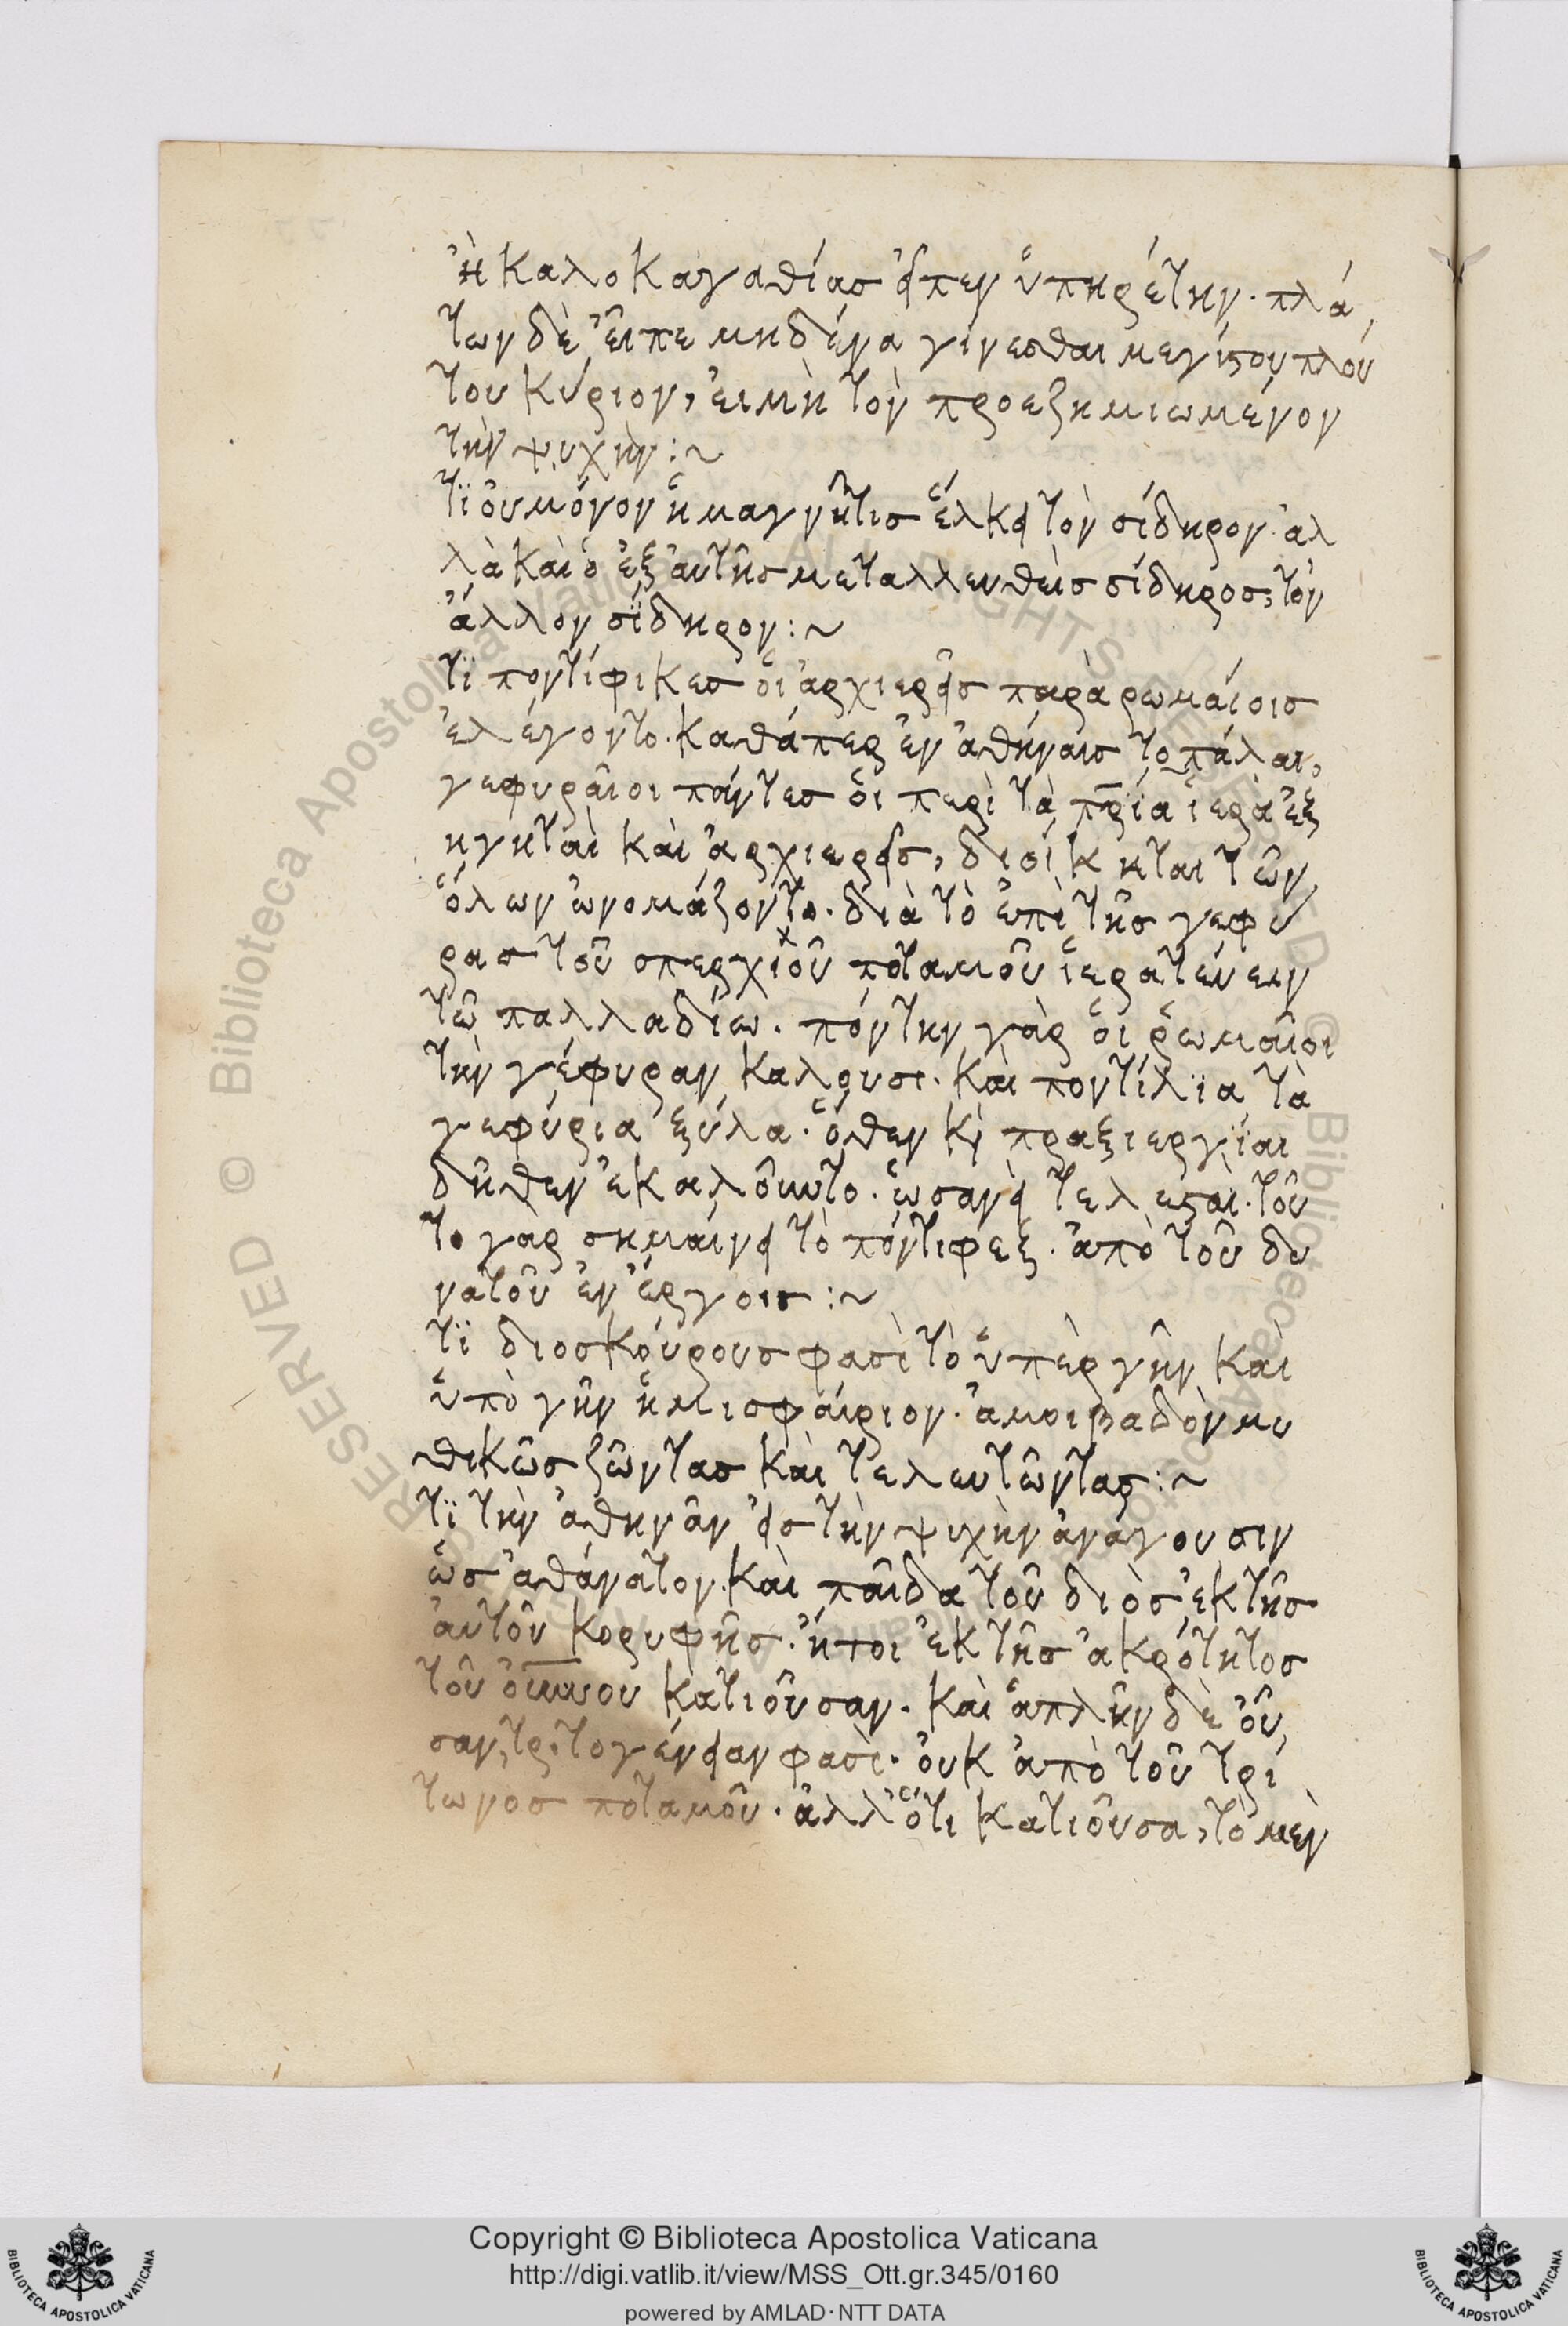 ἢ καλοκαγαθίασ εἶπεν ὑπηρέτην. πλά
των δὲ εἶπε μηδένα γίνεσθαι μεγίστου πλού
του κύριον, εἰ μὴ τὸν προεζημιωμένον
τὴν ψυχήν :~
τϊ οὐ μόνον ἡ μαγνῆτισ ἕλκει τὸν σίδηρον ἀλ
λὰ καὶ ὁ ἐξ αὐτῆσ μεταλλευθεὶσ σίδηροσ, τὸν
ἄλλον σίδηρον :~
τϊ ποντίφικεσ οἱ ἀρχιερεῖσ παρὰ ρωμαίοισ
ἐλέγοντο. καθάπερ ἐν ἀθήναισ το πάλαι,
γεφυραῖοι πάντεσ οἱ περὶ τὰ πρϊα ἱερὰ ἐξ
ηγηταὶ καὶ ἀρχιερεῖσ, διοίκηται τῶν
ὅλων ὠνομάζοντο. διὰ τὸ ἐπὶ τῆσ γεφύ
ρασ τοῦ σπερχιοῦ ποταμοῦ ἱερατεύειν
τῶ παλλαδίω. πόντην γὰρ οἱ ῥωμαῖοι
τὴν γέφυραν καλουσι. καὶ ποντίλϊα τὰ
γεφύρια ξύλα. ὅθεν κὶ πραξιεργίαι
δῆθεν ἐκαλοῦντο. ὡσανεὶ τελεσταί. τοῦ
το γαρ σημαίνει τὸ πόντιφεξ. ἀπὸ τοῦ δυ
νατοῦ ἐν ἔργοισ :~
τϊ διοσκόυρουσ φασὶ τὸ ὑπὲρ γῆν καὶ
ὑπὸ γῆν ἡμισφαίριον. ἀμοιβαδὸν μυ
θικῶσ ζῶντασ καὶ τελευτῶντας :~
τϊ τὴν ἀθηνᾶν εἰσ τὴν ψυχὴν ἀνάγουσιν
ὡσ ἀθάνατον. καὶ παῖδα τοῦ διὸσ ἐκ τῆσ
ἀυτοῦ κορυφῆσ. ἤτοι ἐκ τῆσ ἀκρότητοσ
τοῦ ὀυνου κατιοῦσαν. καὶ ἁπλῆν δὲ οὖ
σαν, τριτογένειαν φασὶ. ὀυκ ἀπὸ τοῦ τρί
τωνοσ ποταμοῦ. ἀλλ' ὅτι κατιοῦσα, τὸ μὲν
Copyright © Biblioteca Apostolica Vaticana
http://digi.vatlib.it/view/MSS_Ott.gr.345/0160
powered by AMLAD·NTT DATA